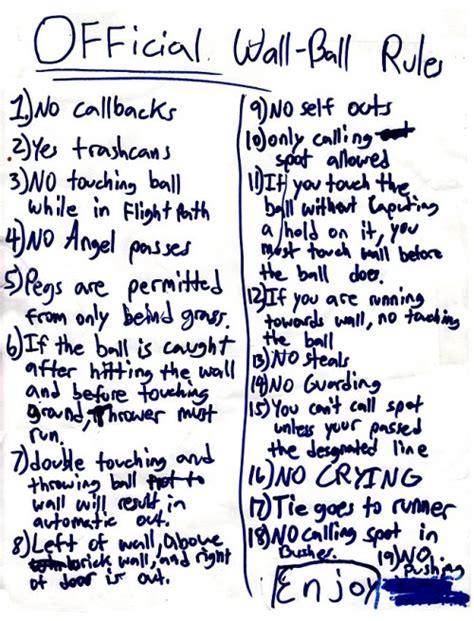 OFFicial Wall-Ball Rules
1.)No callbacks
2)Yes trashcans
3)NO touching ball
while in Flight Path
4)NO Angel passes
5)Pegs are permitted
From only beind grass.
6)If the ball is caught
after hitting the wall
and before touching
ground, Thrower must
run.
7)double touching and
throwing ball
wall will result in
automatic out.
8)Left of wall, above
brick wall, and right
of door is out.
9)NO self outs
10)only calling
spot allowed
11)If you touch the
ball without Caputing
a hold on it, you
must touch wall before
the ball does.
12)If you are running
towards wall, no touching
the ball
13)NO steals
14)NO Guarding
15)You can't call spot
unless your passed
the designated line
16)NO CRYING
17)Tie goes to runner
18)NO calling spot in
Bushes.
19)NO
Pushing
Enjoy